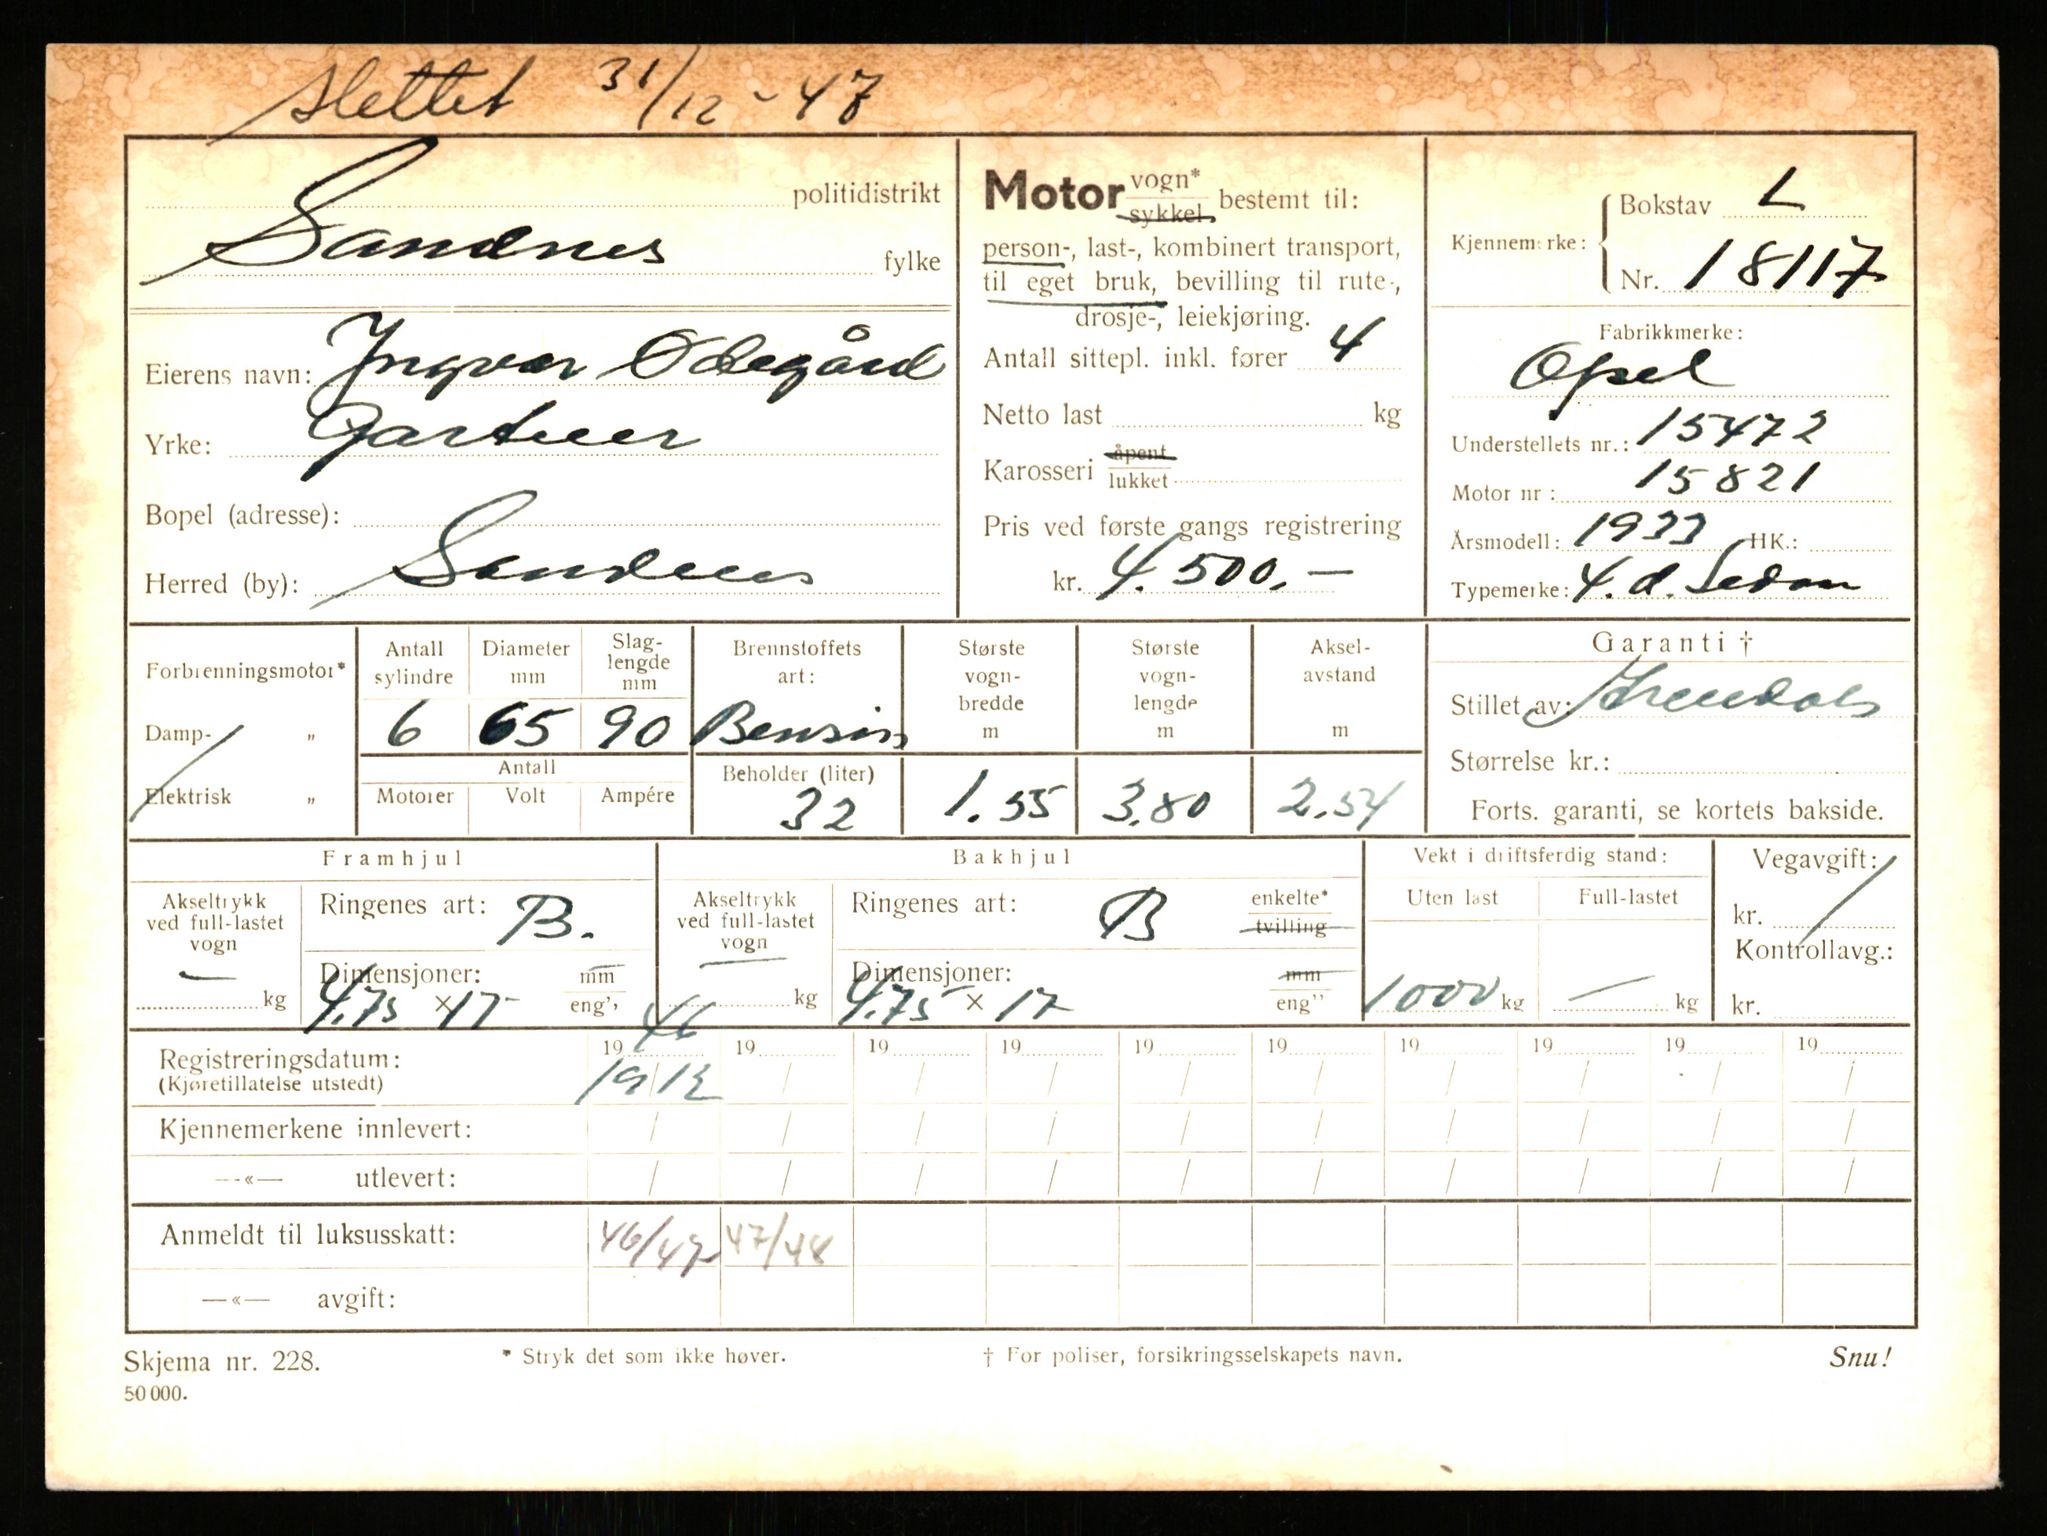 slettet 31/12-47
politidistrikt
Sandnes fylke
Eierens navn: Ingvar Ødegård
Yrke: Gartner
Bopel (adresse):
Herred (by): Sandnes
Motor vogn* sykkel bestemt til:
person-, last-, kombinert transport,
til eget bruk, bevilling til rute-,
drosje-, leiekjøring.
Antall sittepl. inkl. fører 4
Netto last kg
Karosseri åpent lukket
Pris ved første gangs registrering
kr. 4.500,-
Kjennemerke: Bokstav L
Nr. 18117
Fabrikkmerke:
Opel
Understellets nr.: 15472
Motor nr: 15821
Årsmodell: 1933 HK.:
Typemerke: 4.d. Sedan
Forbrenningsmotor*
Damp- "
Elektrisk "
Antall sylindre 6
Diameter mm 65
Slag-lengde mm 90
Antall
Motorer Volt Ampére
Brennstoffets art: Bensin
Beholder (liter) 32
Største vogn-bredde m 1.55
Største vogn-lengde m 3.80
Aksel-avstand m 2.54
Garanti †
Stillet av: Arendals
Størrelse kr.:
Forts. garanti, se kortets bakside.
Framhjul
Akseltrykk ved full-lastet vogn — kg
Ringenes art: B.
Dimensjoner: mm eng"
4.75 × 17
Bakhjul
Akseltrykk ved full-lastet vogn — kg
Ringenes art: B enkelte* tvilling
Dimensjoner: mm eng"
4.75 × 17
Vekt i driftsferdig stand:
Uten last 1000 kg
Full-lastet — kg
Vegavgift: /
kr.
Kontrollavg.:
kr.
19 46 19 19 19 19 19 19 19 19 19
Registreringsdatum: 19/12 / / / / / / / / /
(Kjøretillatelse utstedt)
Kjennemerkene innlevert: / / / / / / / / / /
—«— utlevert: / / / / / / / / / /
Anmeldt til luksusskatt: 46/47 47/48
—«— avgift:
Skjema nr. 228. * Stryk det som ikke høver. † For poliser, forsikringsselskapets navn. Snu!
50 000.